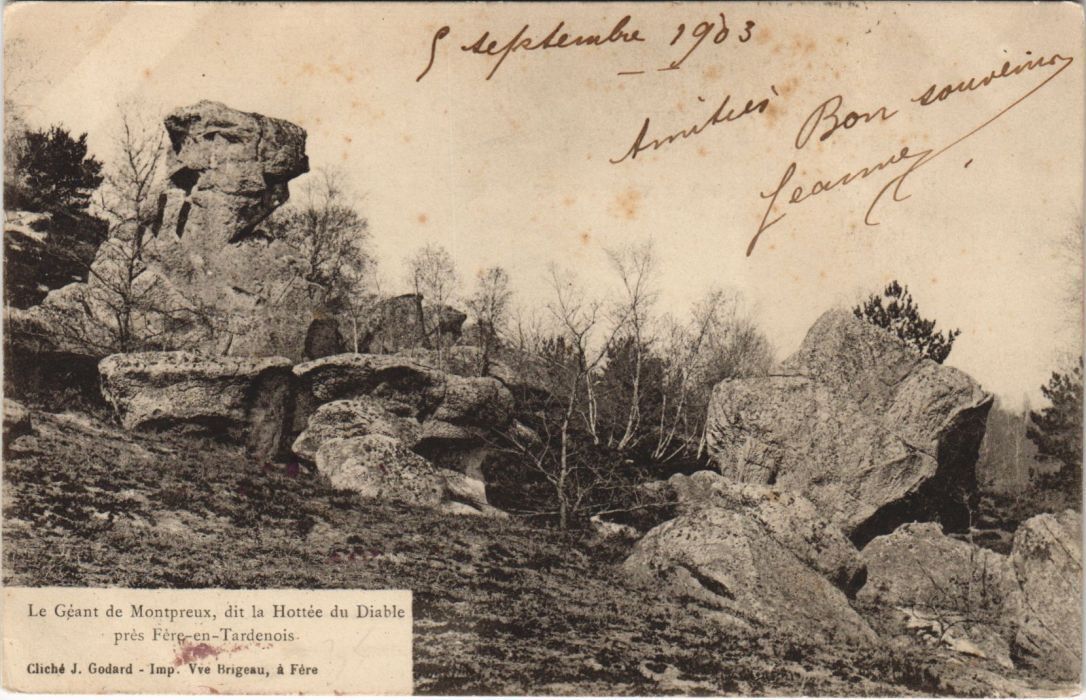 5 septembre 1903
Amitiés Bon souvenir
Jeanne
Le Géant de Montpreux, dit la Hottée du Diable
près Fère-en-Tardenois
Cliché J. Godard - Imp. Vve Brigeau, à Fére